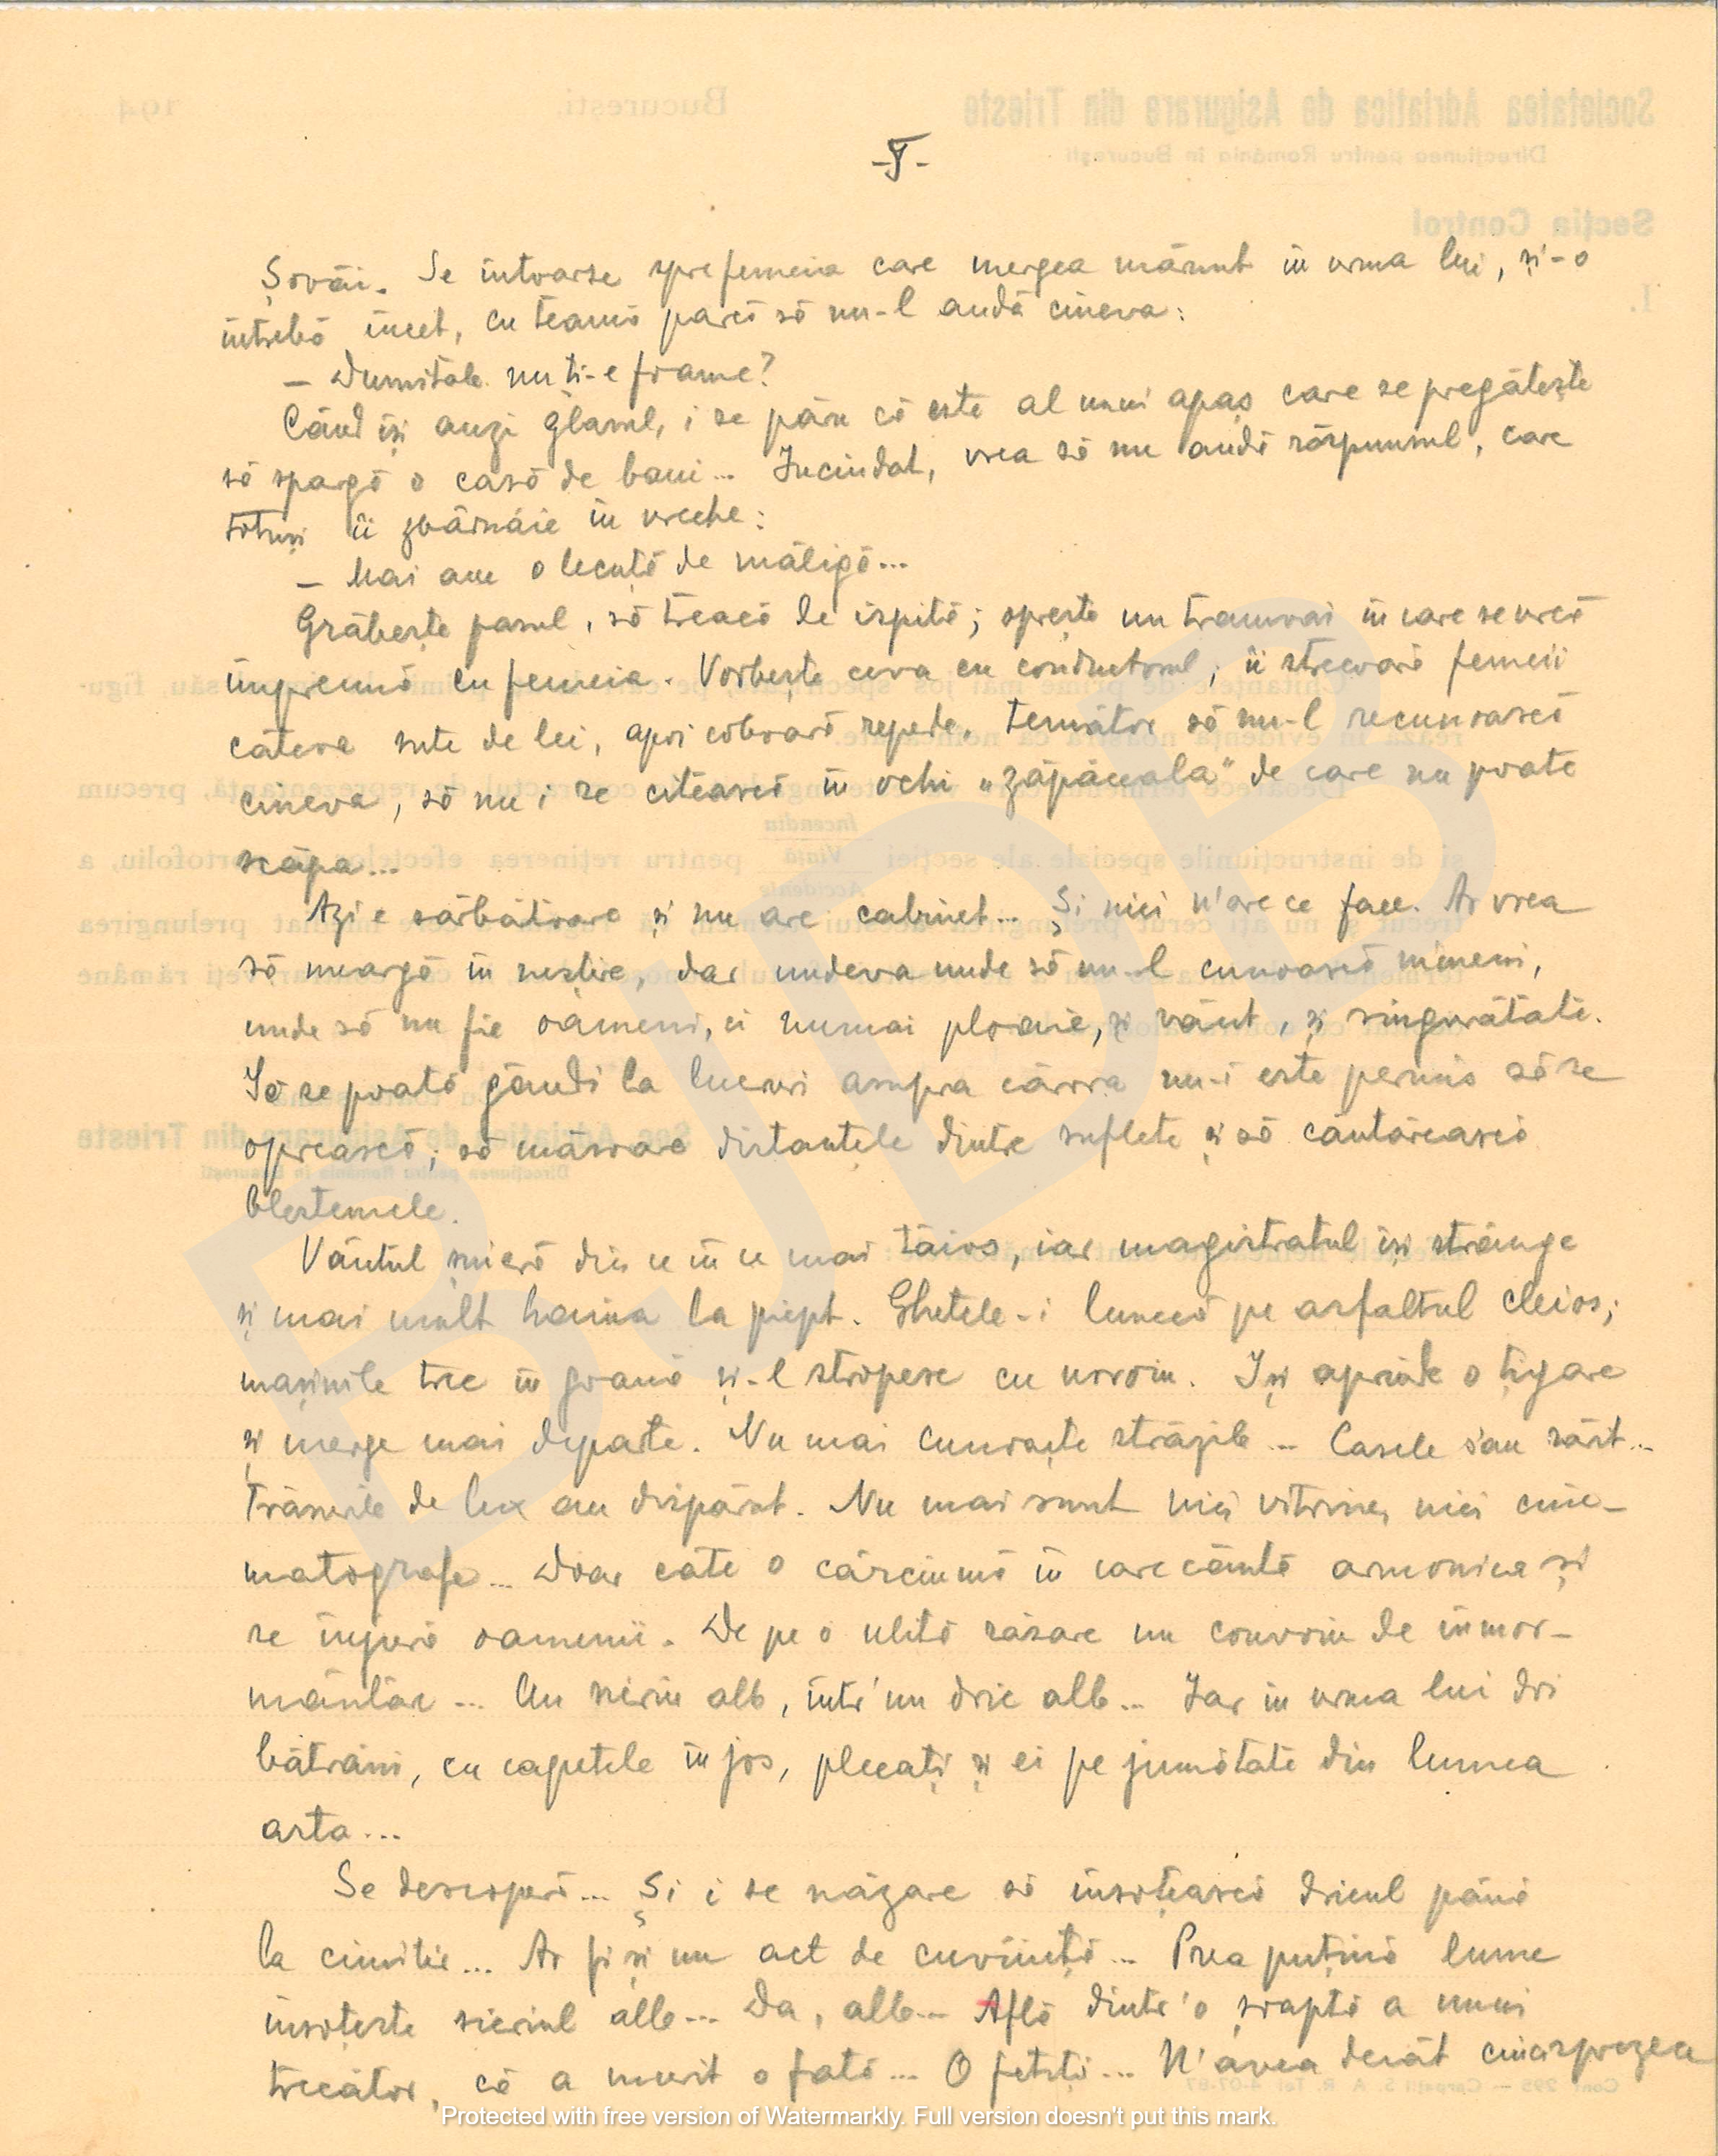 -5-
Șovăi. Se întoarse spre femeia care mergea mărunt în urma lui, și-o
întrebă încet, cu teamă parcă să nu-l audă cineva:
– Dumitale nu ți-e foame?
Când își auzi glasul, i se păru că este al unui apaș care se pregătește
să spargă o casă de bani... Înciudat, vrea să nu audă răspunsul, care
totuși îi zbârnâie în ureche:
– Mai am o lecuță de măligă...
Grăbește pasul, să treacă de ispită; oprește un tramvai în care se urcă
împreună cu femeia. Vorbește ceva cu conductorul, îi strecoară femeii
câteva sute de lei, apoi coboară repede, temător să nu-l recunoască
cineva, să nu i se citească în ochi „zăpăceala" de care nu poate
scăpa...
Azi e sărbătoare și nu are cabinet... Și nici n'are ce face. Ar vrea
să meargă în neștire, dar undeva unde să nu-l cunoască nimeni,
unde să nu fie oameni, ci numai ploaie, și vânt, și singurătate.
Să se poată gândi la lucruri asupra cărora nu-i este permis să se
oprească; să măsoare distanțele dintre suflete și să cântărească
blestemele.
Vântul șuieră din ce în ce mai tăios, iar magistratul își strânge
și mai mult haina la piept. Ghetele-i lunecă pe asfaltul cleios;
mașinile trec în goană și-l stropesc cu noroiu. Își aprinde o țigare
și merge mai departe. Nu mai cunoaște străzile... Casele s'au rărit...
Trăsurile de lux au dispărut. Nu mai sunt nici vitrine, nici cine-
matografe... Doar câte o cârciumă în care cântă armonica și
se înjură oamenii. De pe o uliță răsare un convoiu de înmor-
mântare... Un sicriu alb, într'un dric alb... Iar în urma lui doi
bătrâni, cu capetele în jos, plecați și ei pe jumătate din lumea
asta...
Se descoperă... Și i se năzare să însoțească dricul până
la cimitir... Ar fi și un act de cuviință... Prea puțină lume
însoțește sicriul alb... Da, alb... Află dintr'o șoaptă a unui
trecător, că a murit o fată... O fetiță... N'avea decât cincisprezece
Protected with free version of Watermarkly. Full version doesn't put this mark.